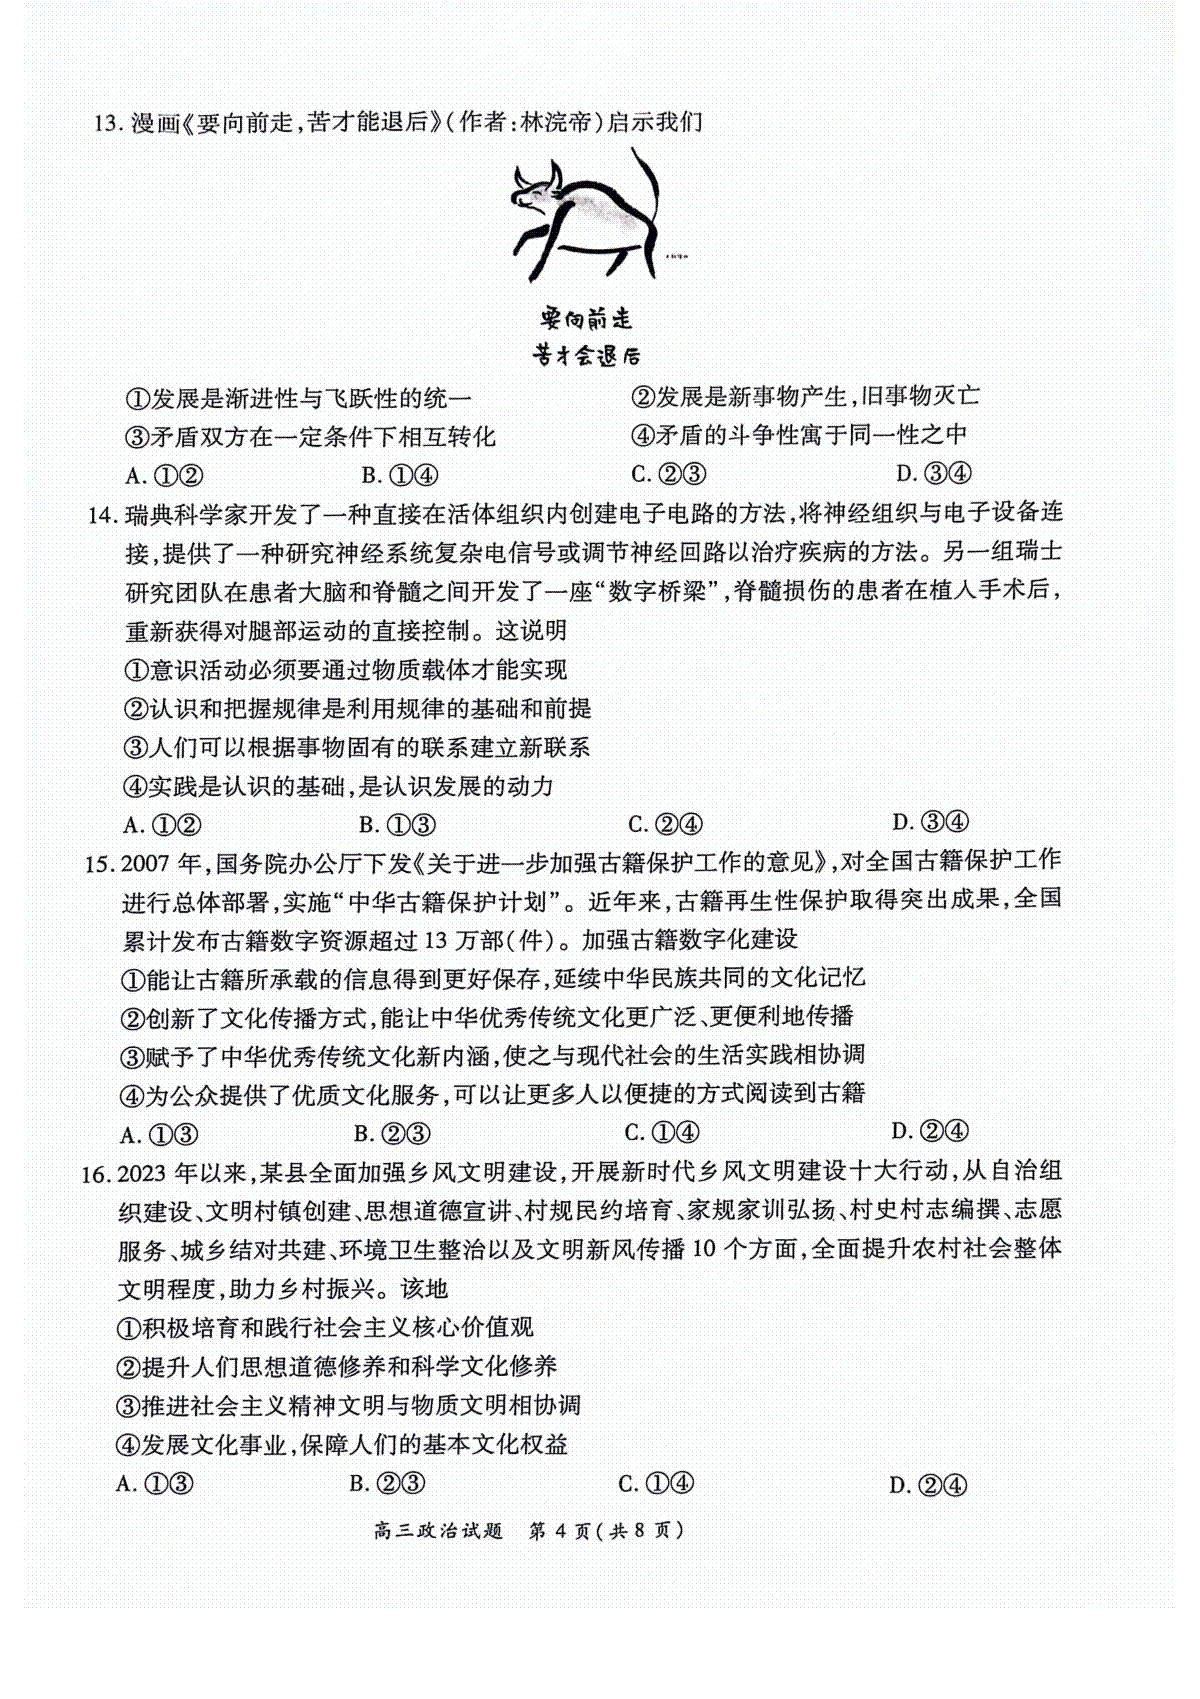 13. 漫画《要向前走,苦才能退后》(作者:林浣帝)启示我们
要向前走
苦才会退后
①发展是渐进性与飞跃性的统一 ②发展是新事物产生,旧事物灭亡
③矛盾双方在一定条件下相互转化 ④矛盾的斗争性寓于同一性之中
A. ①② B. ①④ C. ②③ D. ③④
14. 瑞典科学家开发了一种直接在活体组织内创建电子电路的方法,将神经组织与电子设备连
接,提供了一种研究神经系统复杂电信号或调节神经回路以治疗疾病的方法。另一组瑞士
研究团队在患者大脑和脊髓之间开发了一座“数字桥梁”,脊髓损伤的患者在植入手术后,
重新获得对腿部运动的直接控制。这说明
①意识活动必须要通过物质载体才能实现
②认识和把握规律是利用规律的基础和前提
③人们可以根据事物固有的联系建立新联系
④实践是认识的基础,是认识发展的动力
A. ①② B. ①③ C. ②④ D. ③④
15. 2007 年,国务院办公厅下发《关于进一步加强古籍保护工作的意见》,对全国古籍保护工作
进行总体部署,实施“中华古籍保护计划”。近年来,古籍再生性保护取得突出成果,全国
累计发布古籍数字资源超过 13 万部(件)。加强古籍数字化建设
①能让古籍所承载的信息得到更好保存,延续中华民族共同的文化记忆
②创新了文化传播方式,能让中华优秀传统文化更广泛、更便利地传播
③赋予了中华优秀传统文化新内涵,使之与现代社会的生活实践相协调
④为公众提供了优质文化服务,可以让更多人以便捷的方式阅读到古籍
A. ①③ B. ②③ C. ①④ D. ②④
16. 2023 年以来,某县全面加强乡风文明建设,开展新时代乡风文明建设十大行动,从自治组
织建设、文明村镇创建、思想道德宣讲、村规民约培育、家规家训弘扬、村史村志编撰、志愿
服务、城乡结对共建、环境卫生整治以及文明新风传播 10 个方面,全面提升农村社会整体
文明程度,助力乡村振兴。该地
①积极培育和践行社会主义核心价值观
②提升人们思想道德修养和科学文化修养
③推进社会主义精神文明与物质文明相协调
④发展文化事业,保障人们的基本文化权益
A. ①③ B. ②③ C. ①④ D. ②④
高三政治试题 第 4 页(共 8 页)